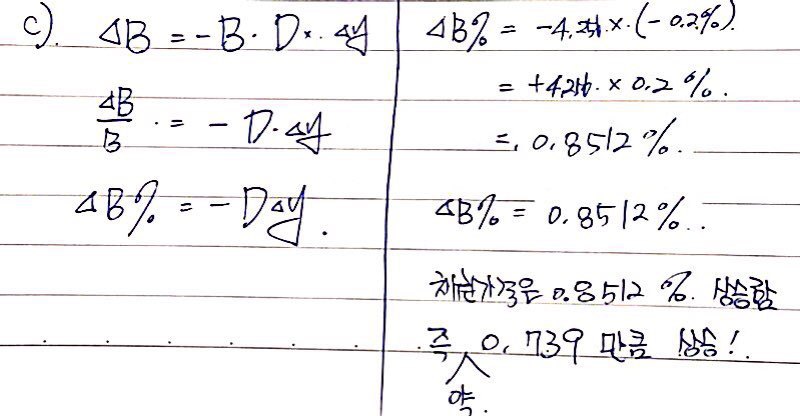 c). ΔB = -B · D × · Δy
ΔB/B · = - D · Δy
ΔB% = - DΔy.
ΔB% = -4.256 × (-0.2%).
= +4.256 × 0.2%.
= 0.8512%.
ΔB% = 0.8512%..
채권가격은 0.8512%. 상승함
즉 약. 0.739 만큼 상승!.